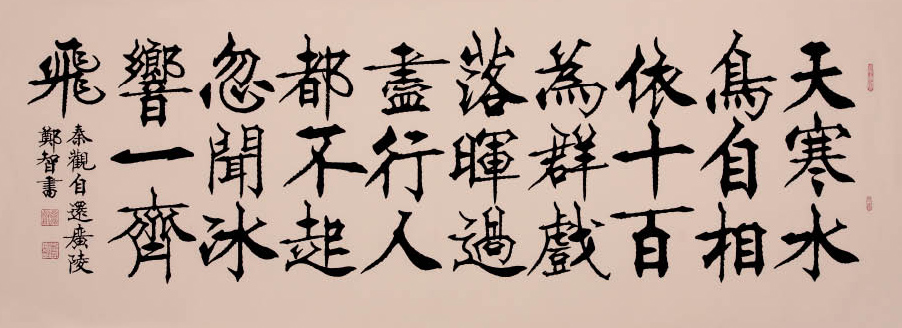 天寒水
鳥自相
依十百
為群戲
落暉過
盡行人
都不起
忽聞冰
響一齊
飛
秦觀自還廣陵
鄭智書